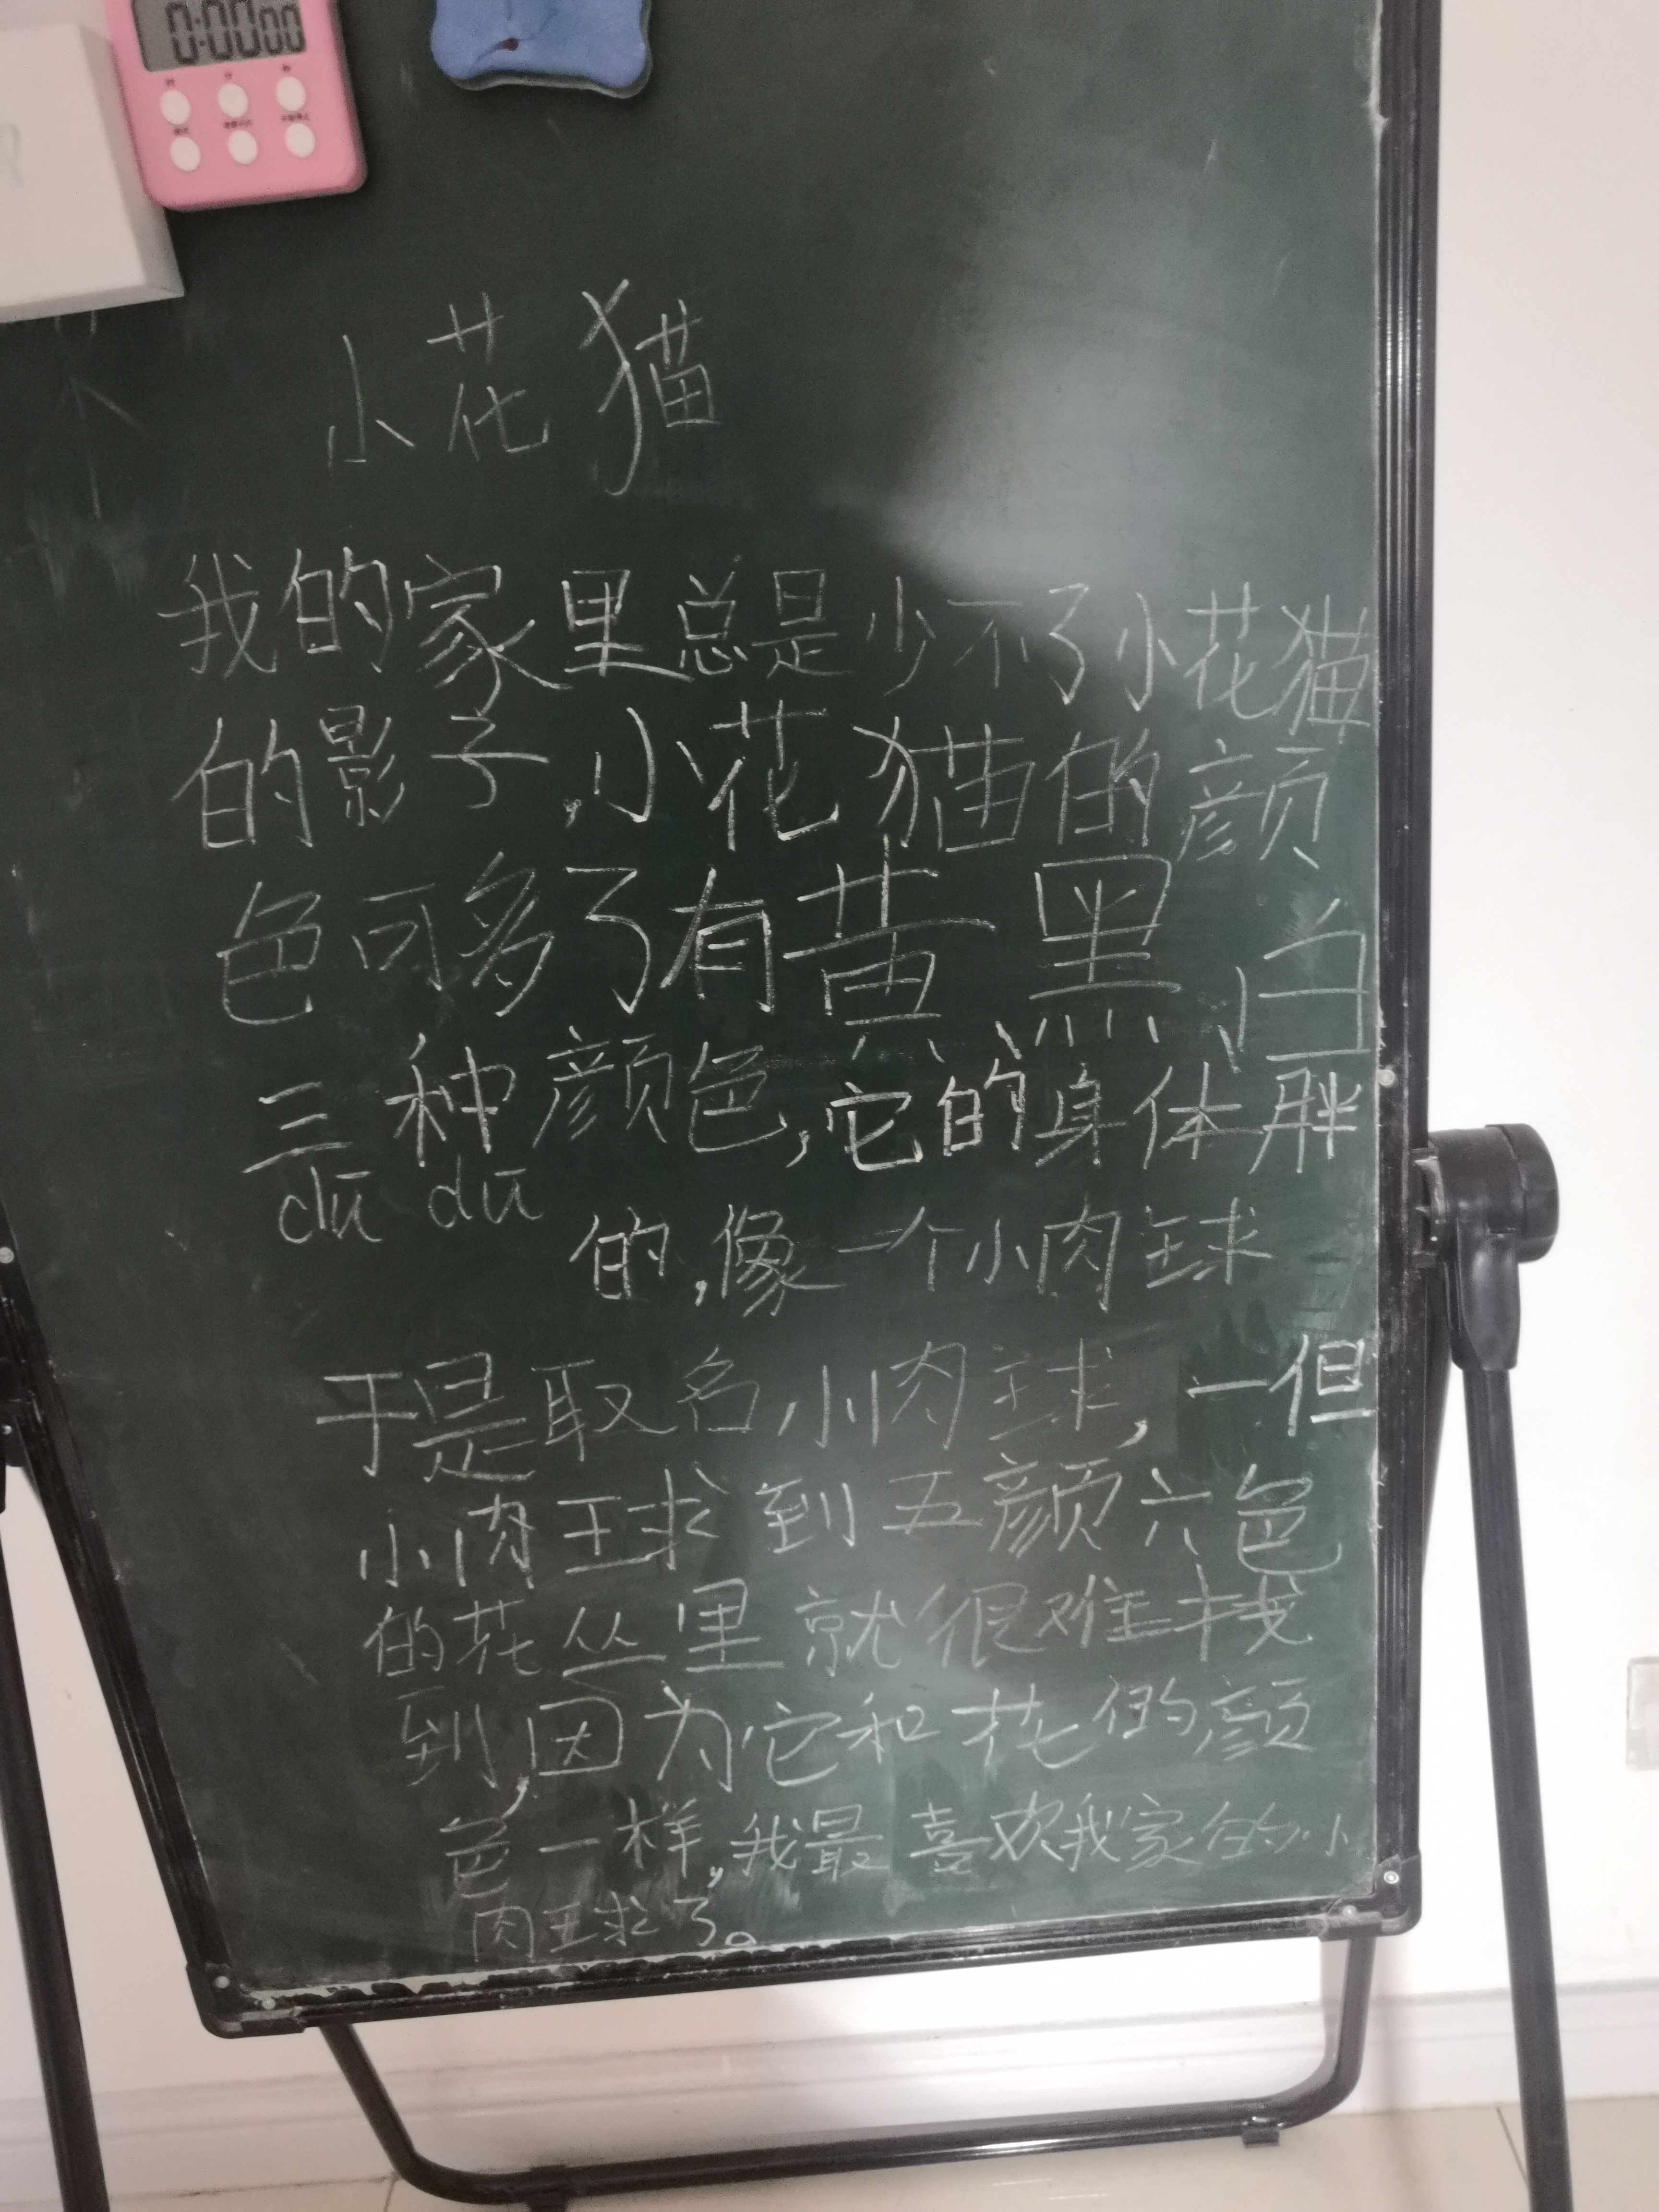 0:00 00
小花猫
我的家里总是少不了小花猫
的影子,小花猫的颜
色可多了有黄、黑、白
三种颜色,它的身体胖
dū dū
的,像一个小肉球
于是取名小肉球,一但
小肉球到五颜六色
的花丛里就很难找
到,因为它和花的颜
色一样,我最喜欢我家的小
肉球了。